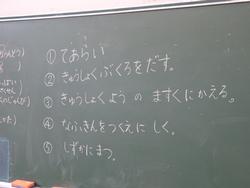 ① てあらい
② きゅうしょくぶくろをだす。
③ きゅうしょくようの ますくにかえる。
④ なふきんをつくえに しく。
⑤ しずかにまつ。